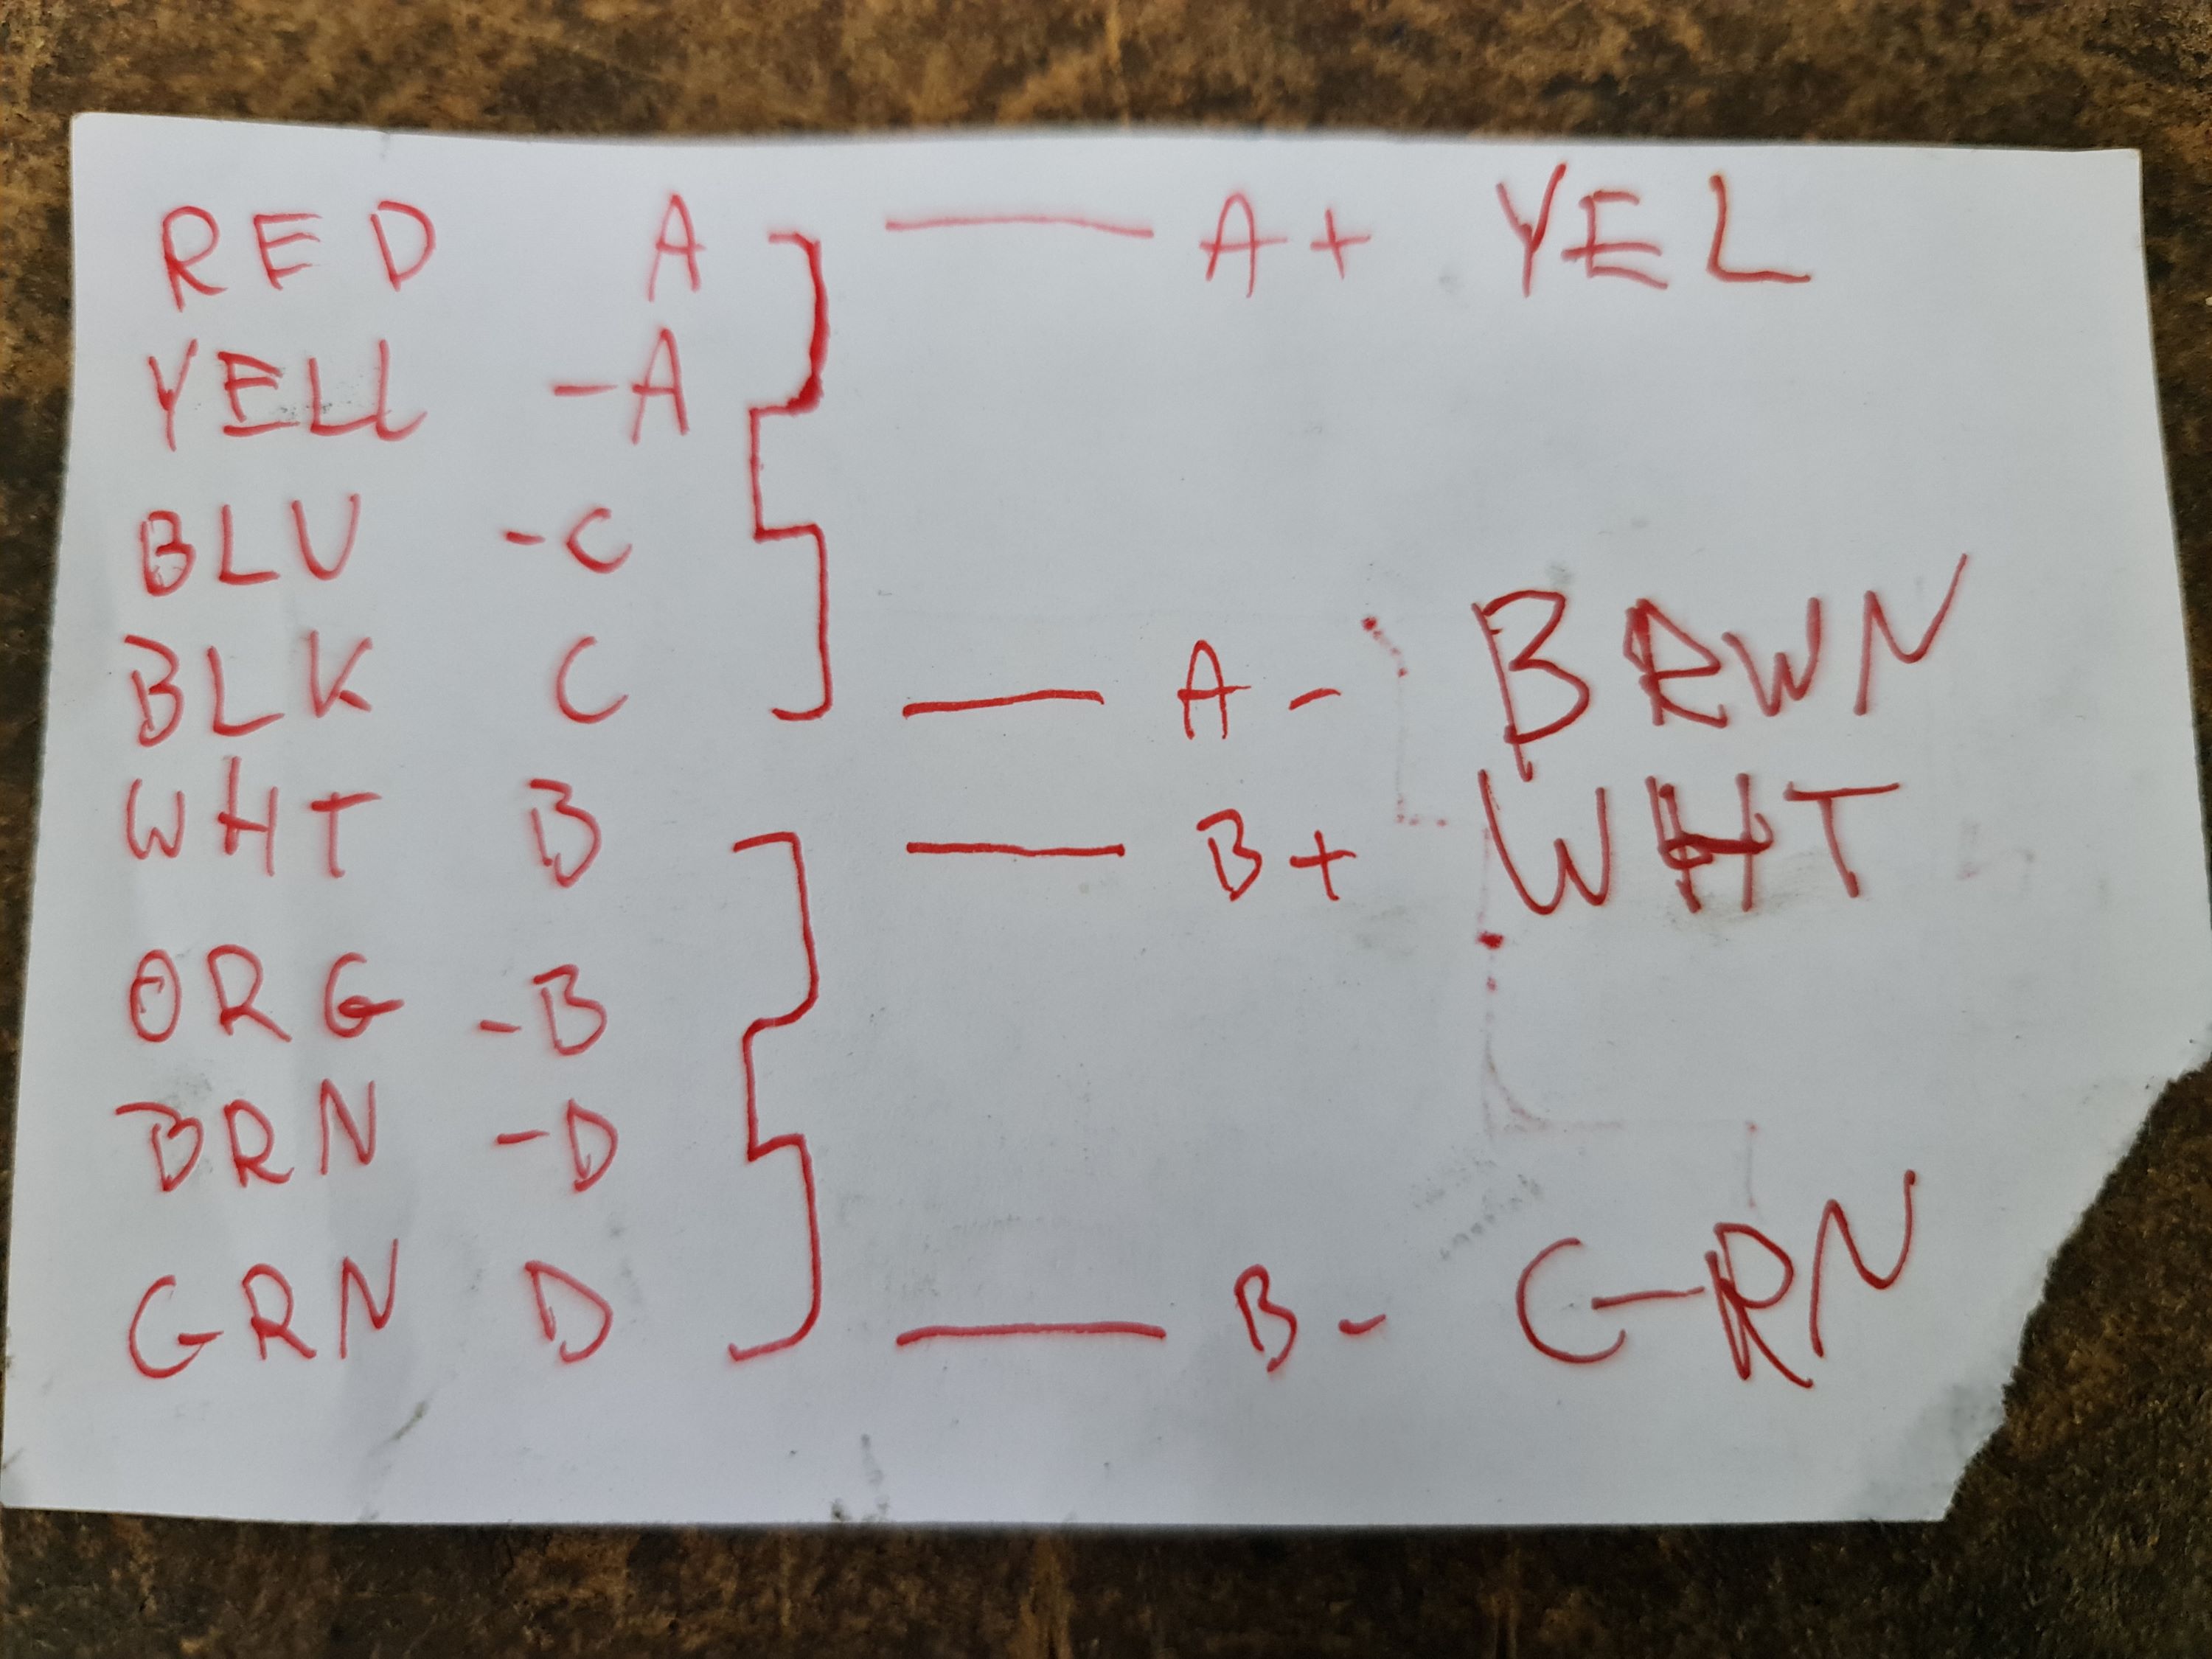 RED A — A+ YEL
YELL -A
BLU -C
BLK C — A- BRWN
WHT B — B+ WHT
ORG -B
BRN -D
GRN D — B- GRN